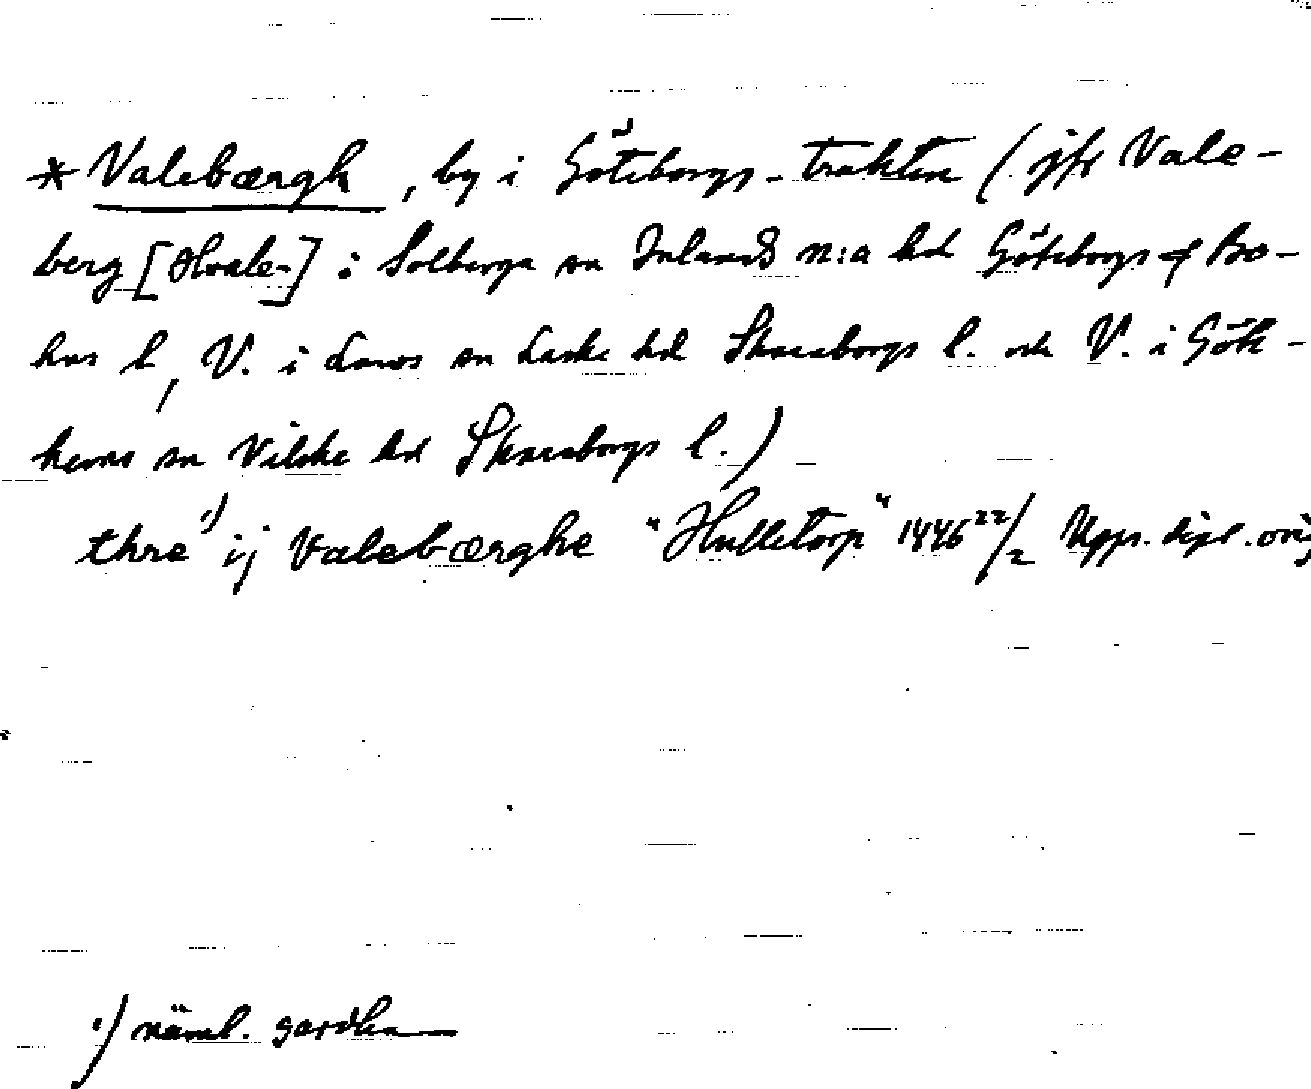 * Valebærgh, by i Göteborgs-trakten (jfr Vale-
berg [Hvale-] i Solberga sn Inlands n:a hd Göteborgs o Bo-
hus l, V. i Larvs sn Laske hd Skaraborgs l. och V. i Gök-
hems sn Vilske hd Skaraborgs l.)
thre 1) ij Valebærghe "Hulletorp" 1446 22/2 Upps. dipl. orig
1) näml. gardha